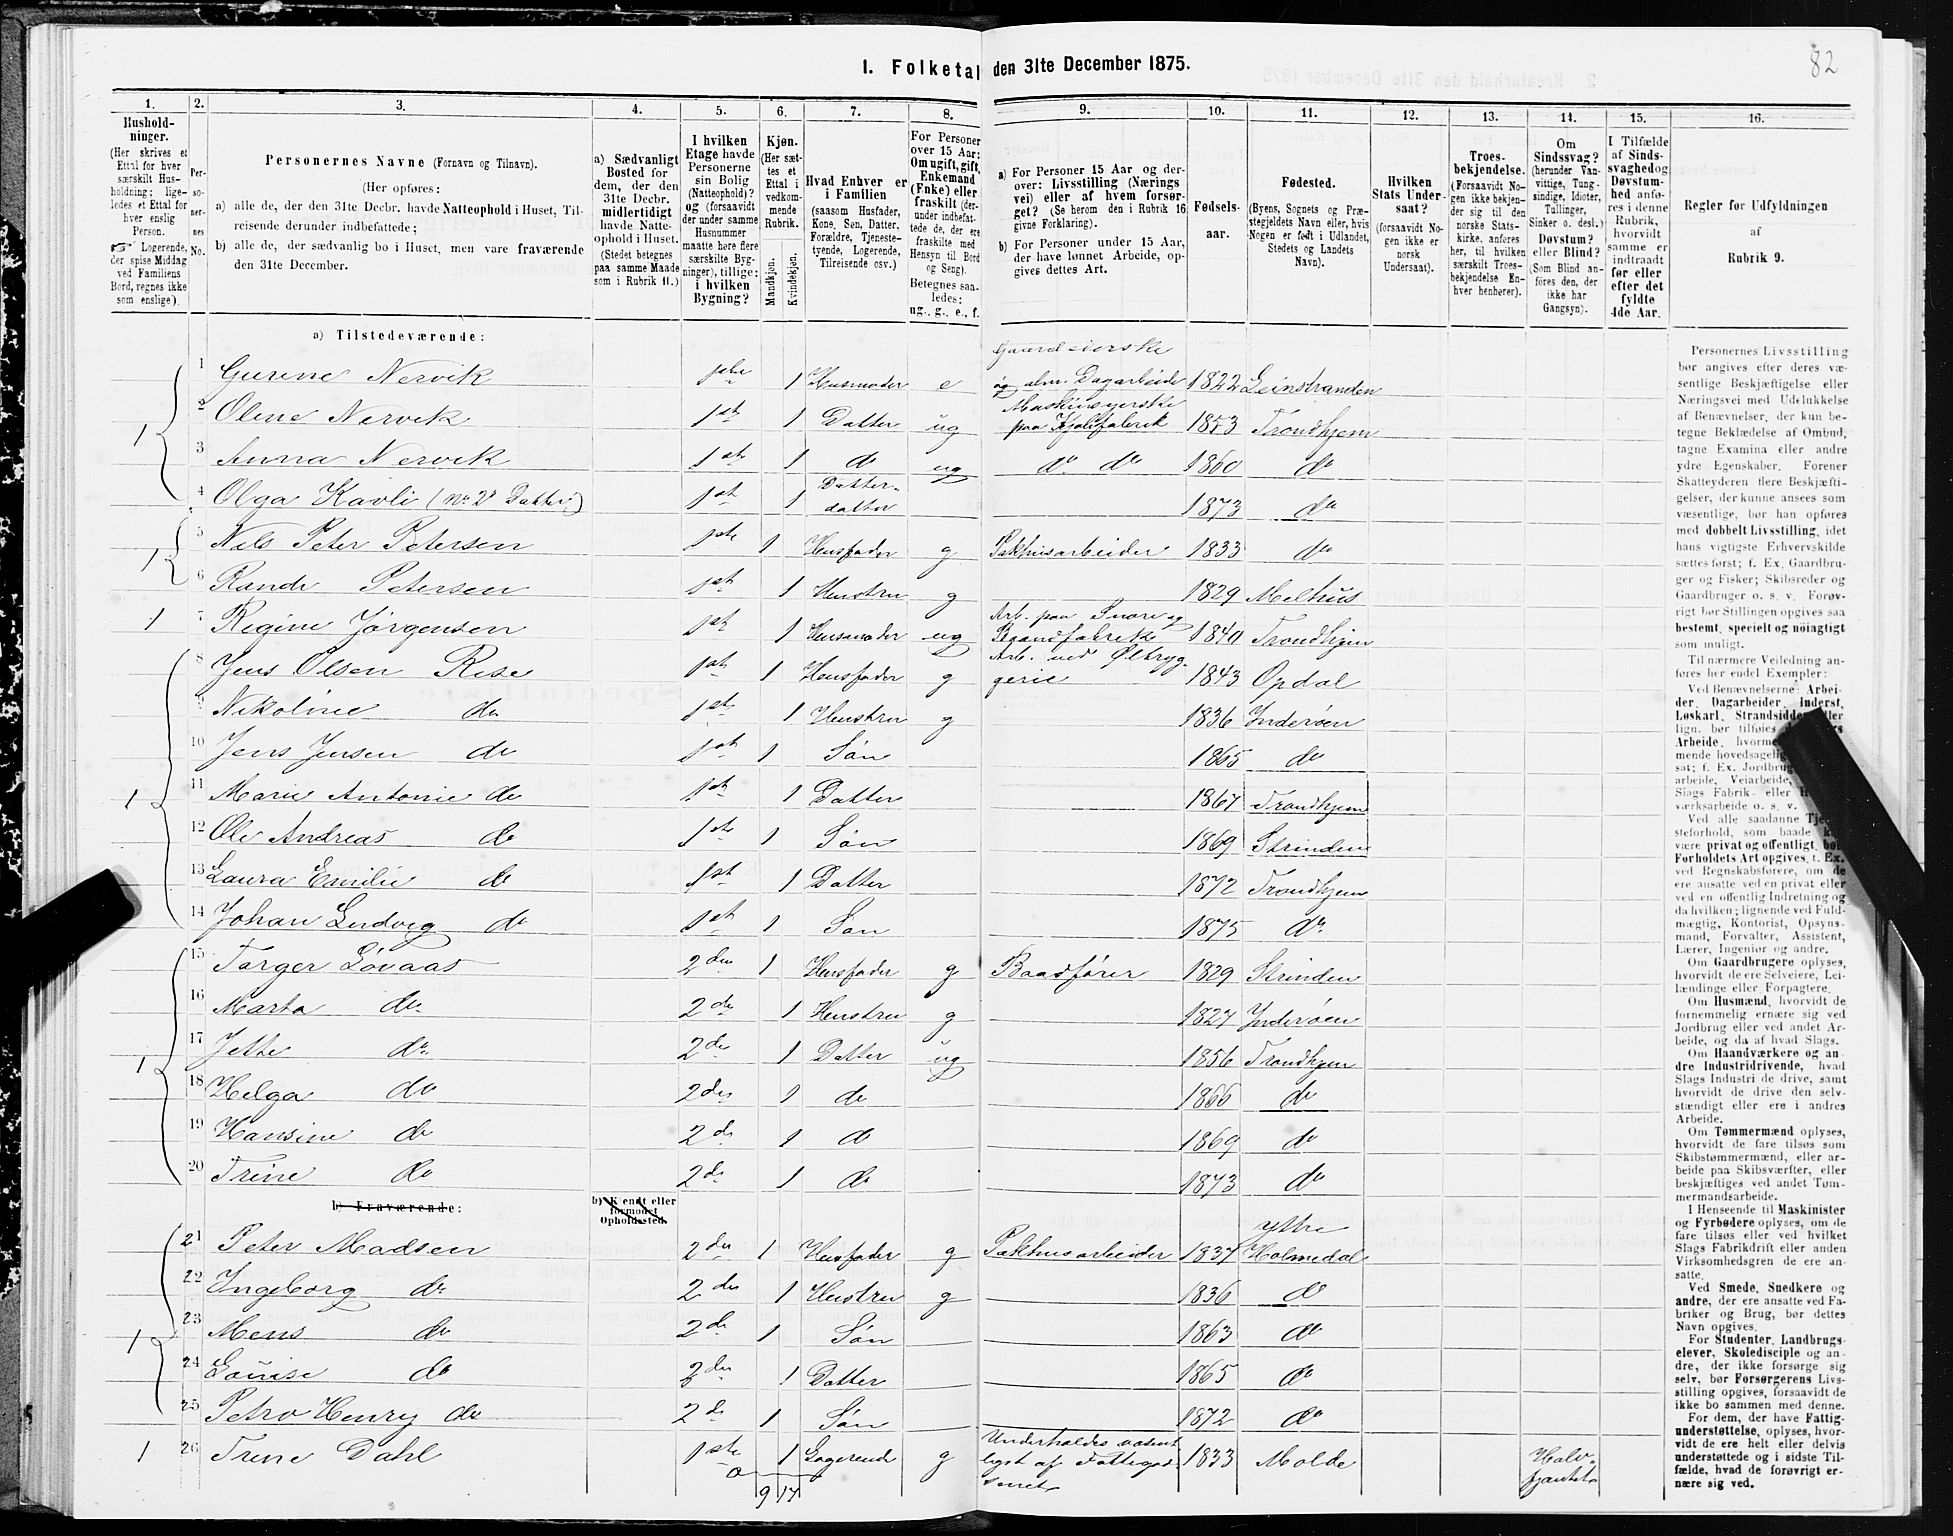 82
I. Folketal den 31te December 1875.
1. 2. 3. 4. 5. 6. 7. 8. 9. 10. 11. 12. 13. 14. 15. 16.
Hushold-
ninger.
(Her skrives et
Ettal for hver
særskilt Hus-
holdning; lige-
ledes et Ettal for
hver enslig
Person.
Logerende,
der spise Middag
ved Familiens
Bord, regnes ikke
som enslige).
Per-
so-
ner-
nes
No.
Personernes Navne (Fornavn og Tilnavn).
(Her opføres:
a) alle de, der den 31te Decbr. havde Natteophold i Huset, Til-
reisende derunder indbefattede;
b) alle de, der sædvanlig bo i Huset, men vare fraværende
den 31te December.
a) Sædvanligt
Bosted for
dem, der den
31te Decbr.
midlertidigt
havde Natte-
ophold i Huset.
(Stedet betegnes
paa samme Maade
som i Rubrik 11.)
I hvilken
Etage havde
Personerne
sin Bolig
(Natteophold)?
og (forsaavidt
der under samme
Husnummer
maatte høre flere
særskilte Byg-
ninger), tillige:
i hvilken
Bygning?
Kjøn.
(Her sæt-
tes et
Ettal i
vedkom-
mende
Rubrik.
Mandkjøn.
Kvindekjøn.
Hvad Enhver er
i Familien
(saasom Husfader,
Kone, Søn, Datter,
Forældre, Tjeneste-
tyende, Logerende,
Tilreisende osv.)
For Personer
over 15 Aar:
Om ugift, gift,
Enkemand
(Enke) eller
fraskilt (der-
under indbefat-
tede de, der ere
fraskilte med
Hensyn til Bord
og Seng).
Betegnes saa-
ledes:
ug., g., e., f.
a) For Personer 15 Aar og der-
over: Livsstilling (Nærings
vei) eller af hvem forsør-
get? (Se herom den i Rubrik 16
givne Forklaring).
b) For Personer under 15 Aar,
der have lønnet Arbeide, op-
gives dettes Art.
Fødsels-
aar.
Fødested.
(Byens, Sognets og Præ-
stegjeldets Navn eller, hvis
Nogen er født i Udlandet,
Stedets og Landets
Navn).
Hvilken
Stats Under-
saat?
(forsaavidt No-
gen ikke er
norsk
Undersaat).
Troes-
bekjendelse.
(Forsaavidt No-
gen ikke bekjen-
der sig til den
norske Stats-
kirke, anføres
her, til hvilken
særskilt Troes-
bekjendelse En-
hver henhører).
Om
Sindssvag?
(herunder Van-
vittige, Tung-
sindige, Idioter,
Tullinger,
Sinker o. desl.)
Døvstum?
eller Blind?
(Som Blind an-
føres den, der
ikke har
Gangsyn).
I Tilfælde
af Sinds-
svaghed og
Døvstum-
hed anfø-
res i denne
Rubrik,
hvorvidt
samme er
indtraadt
før eller
efter det
fyldte
4de Aar.
Regler for Udfyldningen
af
Rubrik 9.
a) Tilstedeværende:
1 Gurine Nervik 1ste 1 Husmoder e Gaardeierske og alm. Dagarbeide 1822 Leinstranden
1 2 Oline Nervik 1st 1 Datter ug Maskinsyerske paa Kjolefabrik 1853 Trondhjem
3 Anna Nervik 1ste 1 do ug do do 1860 do
4 Olga Kavli (No 2s Datter) 1st 1 Datter-datter 1873 do
1 5 Nils Peter Petersen 1ste 1 Husfader g Pakhusarbeider 1833 do
6 Randi Petersen 1ste 1 Hustru g 1829 Melhus
1 7 Regine Jørgensen 1ste 1 Husmoder ug Arb. paa Snøre og Baandfabrik 1840 Trondhjem
8 Jens Olsen Rise 1st 1 Husfader g Arb. ved Ølbryg-gerie 1843 Opdal
9 Nikoline do 1st 1 Hustru g 1836 Inderøen
10 Jens Jensen do 1st 1 Søn 1865 do
1 11 Marie Antonie do 1st 1 Datter 1867 Trondhjem
12 Ole Andreas do 1ste 1 Søn 1869 Strinden
13 Laura Emilie do 1st 1 Datter 1872 Trondhjem
14 Johan Ludvig do 1st 1 Søn 1875 do
15 Torger Løvaas 2den 1 Husfader g Baadfører 1829 Strinden
16 Marta do 2de 1 Hustru g 1827 Inderøen
1 17 Jette do 2de 1 Datter ug 1856 Trondhjem
18 Helga do 2den 1 do 1866 do
19 Hansine do 2de 1 do 1869 do
20 Trine do 2de 1 do 1873 do
b) Fraværende: b) Kjendt eller
formodet
Opholdssted.
21 Peter Madsen 2den 1 Husfader g Pakhusarbeider 1837 Yttre Holmedal
22 Ingeborg do 2den 1 Hustru g 1836 do
1 23 Mens do 2de 1 Søn 1863 do
24 Louise do 2den 1 Datter 1865 do
25 Petro Henry do 2de 1 Søn 1872 do
1 26 Trine Dahl 1ste 1 Logerende g Underholdes væsent-ligst af Fattigvæsenet 1833 Molde Halv-
9 17
Personernes Livsstilling
bør angives efter deres væ-
sentlige Beskjæftigelse eller
Næringsvei med Udelukkelse
af Benævnelser, der kun be-
tegne Beklædelse af Ombud,
tagne Examina eller andre
ydre Egenskaber. Forener
Skatteyderen flere Beskjæfti-
gelser, der kunne ansees som
væsentlige, bør han opføres
med dobbelt Livsstilling, idet
hans vigtigste Erhvervskilde
sættes først; f. Ex. Gaardbru-
ger og Fisker; Skibsreder og
Gaardbruger o. s. v. Forøv-
rigt bør Stillingen opgives saa
bestemt, specielt og nøiagtigt
som muligt.
Til nærmere Veiledning an-
føres her endel Exempler:
Ved Benævnelserne: Arbei-
der, Dagarbeider, Inderst,
Løskarl, Strandsidder eller
lign. bør tilføies
Arbeide, hvorme
mende hovedsagelig
sat; f. Ex. Jordbrug
arbeide, Veiarbeide,
Slags Fabrik- eller
værksarbeide o. s. v.
Ved alle saadanne
steforhold, som baade
være privat og offentligt,
Forholdets Art opgives, t. Ex.
ved Regnskabsførere, om de
ere ansatte ved en privat eller
ved en offentlig Indretning og
da hvilken; lignende ved Fuld-
mægtig, Kontorist, Opsyns-
mand, Forvalter, Assistent,
Lærer, Ingeniør og andre.
Om Gaardbrugere oplyses,
hvorvidt de ere Selveiere, Lei-
lændinge eller Forpagtere.
Om Husmænd, hvorvidt de
fornemmelig ernære sig ved
Jordbrug eller ved andet Ar-
beide, og da af hvad Slags.
Om Haandværkere og an-
dre Industridrivende, hvad
Slags Industri de drive, samt
hvorvidt de drive den selv-
stændigt eller ere i andres
Arbeide.
Om Tømmermænd oplyses,
hvorvidt de fare tilsøs som
Skibstømmermænd, eller ar-
beide paa Skibsværfter, eller
beskjæftiges ved andet Tøm-
mermandsarbeide.
I Henseende til Maskinister
og Fyrbødere oplyses, om de
fare tilsøs eller ved hvilket
Slags Fabrikdrift eller anden
Virksomhedsgren de ere an-
satte.
Ved Smede, Snedkere og
andre, der ere ansatte ved Fa-
briker og Brug, bør dettes
Navn opgives.
For Studenter, Landbrugs-
elever, Skoledisciple og an-
dre, der ikke forsørge sig
selv, bør Forsørgerens Livs-
stilling opgives, forsaavidt de
ikke bo sammen med denne.
For dem, der have Fattig-
understøttelse, oplyses, hvor-
vidt de ere helt eller delvis
understøttede og i sidste Til-
fælde, hvad de forøvrigt er-
nære sig ved.